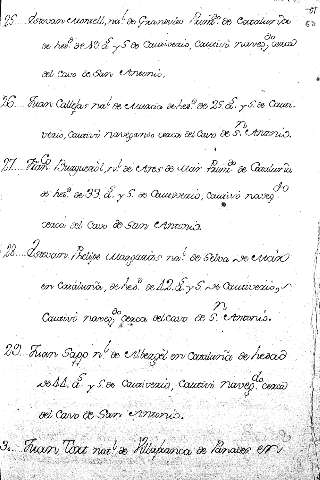 25. Estevan Morell, nat.l de Granollers Prinz.do de Cataluña
de hed.d de 40 a.s y 5 de Cautiverio, Cautivó naveg.do cerca
del Cavo de San Antonio.
26. Juan Callejas nat.l de Murcia de hed.d de 25 a.s y 5 de Cauti-
verio, cautivó navegando cerca del Cavo de S.n Antonio.
27. Burguerol, n.l de Ares de Mar de Cataluña
de hed.d de 33 a.s y 5 de Cautiverio, cautivó naveg.do
cerca del Cavo de San Antonio
28. Estevan Phelipe Margarias nat.l de Selva de Mar
en Cataluña, de hed.d de 42 a.s y 5 de Cautiverio,
Cautivó naveg.do cerca del Cavo de S.n Antonio.
29. Juan Sapp n.l de en Cataluña de hedad
de 44 a.s y 5 de Cautiverio, Cautivó naveg.do cerca
del Cavo de San Antonio.
3. Juan Tort nat.l de Villafranca de Panades en